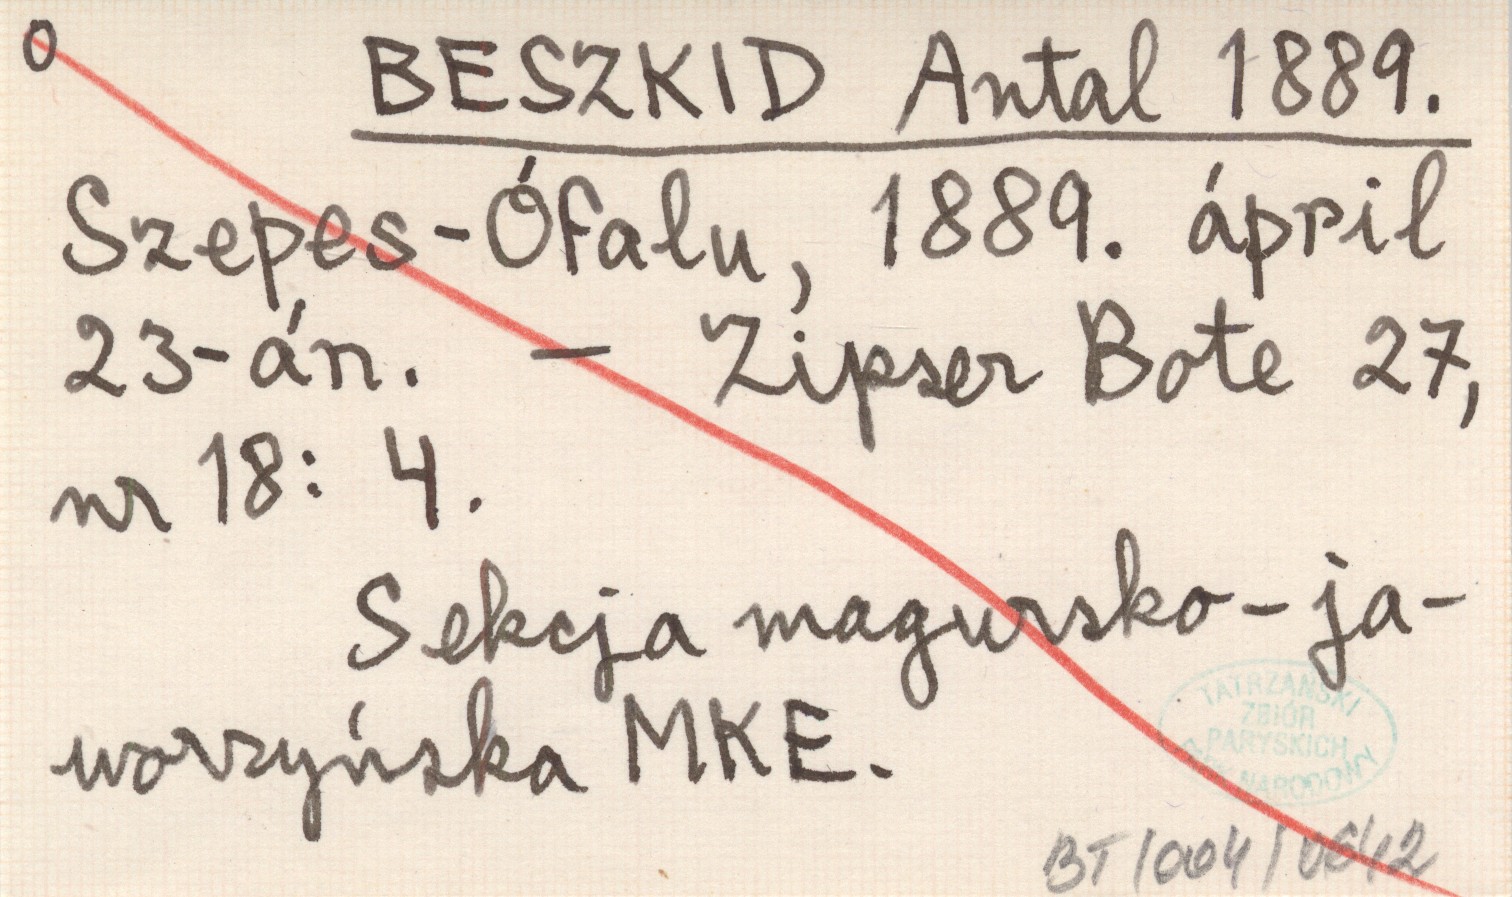 0
BESZKID Antal 1889.
Szepes-Ófalu, 1889. ápril
23-án. — Zipser Bote 27,
nr 18: 4.
Sekcja magursko-ja-
worzyńska MKE.
TATRZAŃSKI
ZBIÓR
PARYSKICH
NARODOWY
BT/004/0642